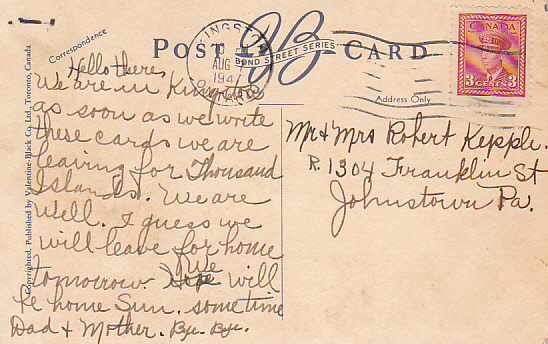 Correspondence
POST CARD
BOND STREET SERIES
KINGSTON
AUG
194
ONTARIO
CANADA
3 CENTS 3
Address Only
Copyrighted. Published by Valentine-Black Co., Ltd., Toronto, Canada
Hello there,
We are in Kingston
as soon as we write
these cards we are
leaving for Thousand
Islands. We are
well. I guess we
will leave for home
tomorrow. We will
be home Sun. sometime
Dad & Mother. Bye. Bye.
Mr & Mrs Robert Kepple.
R. 1304 Franklin St
Johnstown Pa.